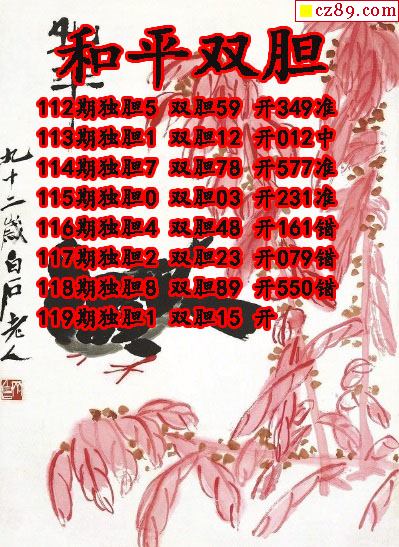 cz89.com
和平双胆
112期独胆5 双胆59 开349准
113期独胆1 双胆12 开012中
114期独胆7 双胆78 开577准
115期独胆0 双胆03 开231准
116期独胆4 双胆48 开161错
117期独胆2 双胆23 开079错
118期独胆8 双胆89 开550错
119期独胆1 双胆15 开
九十二岁白石老人